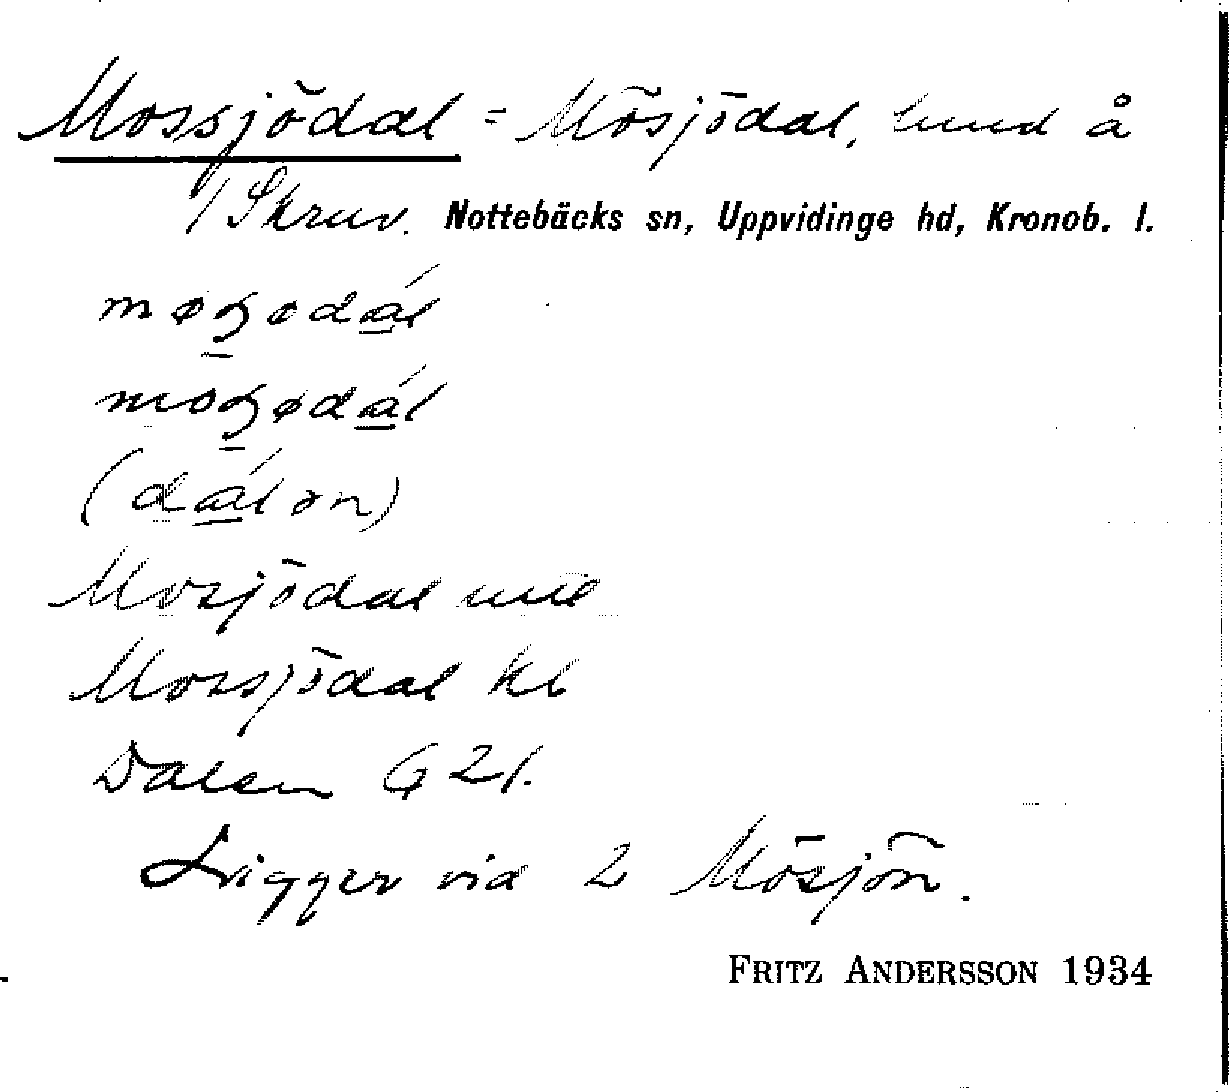 Mossjödal = Mösjödal, lund å
1/ Skruv. Nottebäcks sn, Uppvidinge hd, Kronob. l.
(dálən)
Mosjödal
Mossjödal kl
Dalen G 21.
Ligger vid 2 Mösjön.
FRITZ ANDERSSON 1934